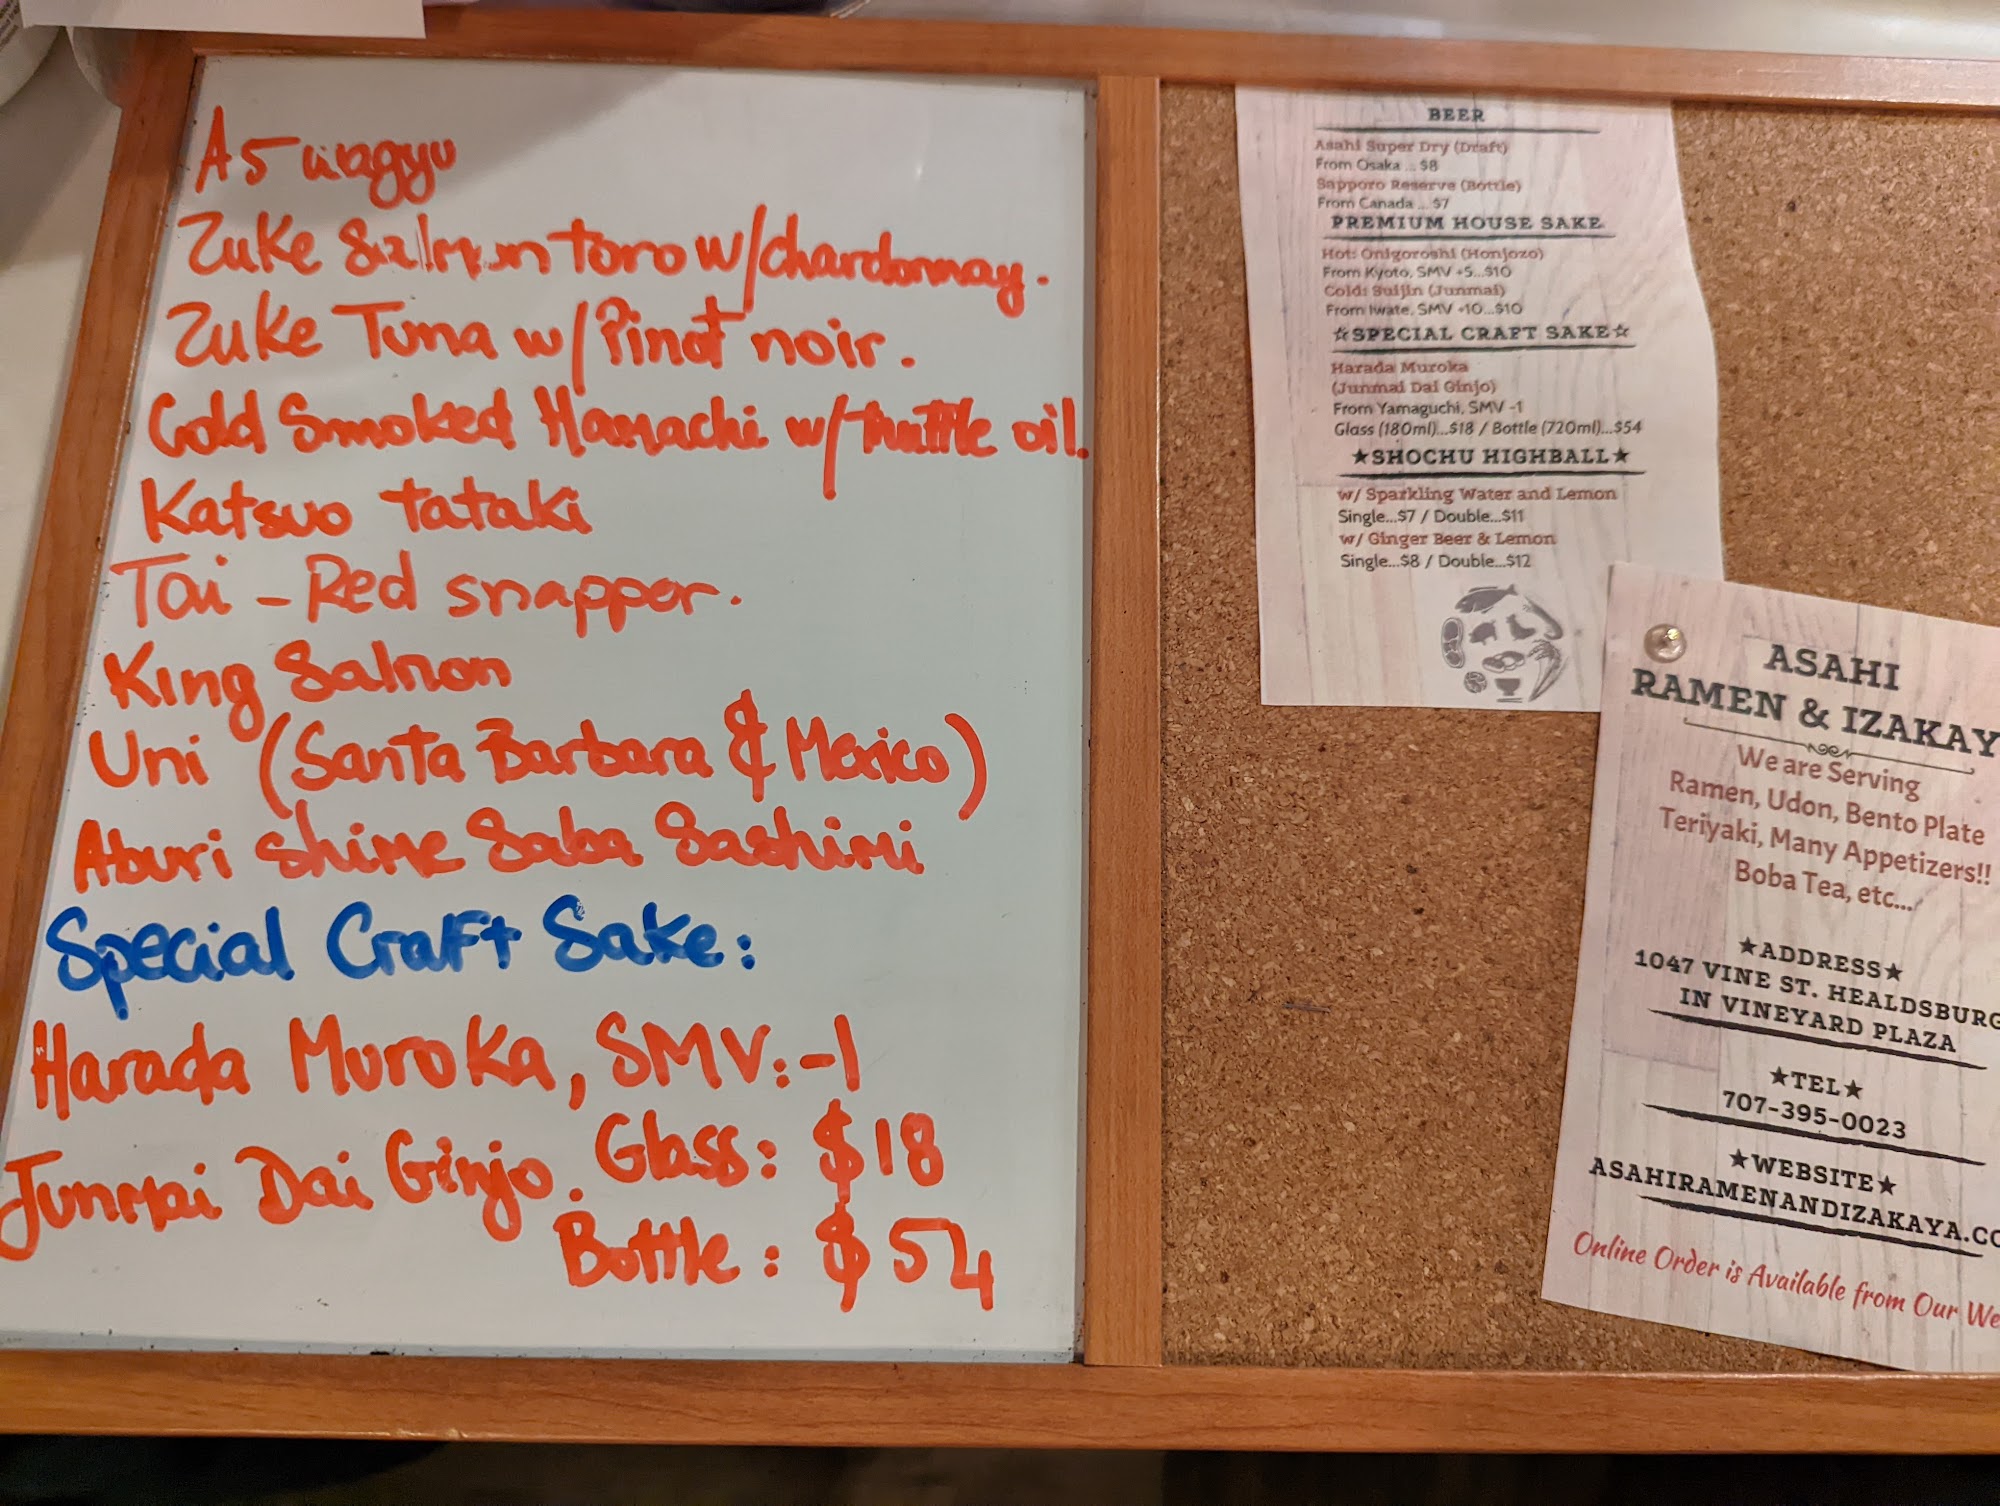 A5 wagyu
Zuke Salmon toro w/chardonnay.
Zuke Tuna w/Pinot noir.
Cold Smoked Hamachi w/truffle oil.
Katsuo tataki
Tai - Red snapper.
King Salmon
Uni (Santa Barbara & Mexico)
Aburi shime Saba Sashimi
Special Craft Sake:
Harada Muroka, SMV:-1
Junmai Dai Ginjo. Glass: $18
Bottle: $54
BEER
Asahi Super Dry (Draft)
From Osaka ... $8
Sapporo Reserve (Bottle)
From Canada ... $7
PREMIUM HOUSE SAKE
Hot: Onigoroshi (Honjozo)
From Kyoto, SMV +5...$10
Cold: Suijin (Junmai)
From Iwate, SMV +10...$10
☆SPECIAL CRAFT SAKE☆
Harada Muroka
(Junmai Dai Ginjo)
From Yamaguchi, SMV -1
Glass (180ml)...$18 / Bottle (720ml)...$54
★SHOCHU HIGHBALL★
w/ Sparkling Water and Lemon
Single...$7 / Double...$11
w/ Ginger Beer & Lemon
Single...$8 / Double...$12
ASAHI
RAMEN & IZAKAY
We are Serving
Ramen, Udon, Bento Plate
Teriyaki, Many Appetizers!!
Boba Tea, etc...
★ADDRESS★
1047 VINE ST. HEALDSBURG
IN VINEYARD PLAZA
★TEL★
707-395-0023
★WEBSITE★
ASAHIRAMENANDIZAKAYA.CO
Online Order is Available from Our We